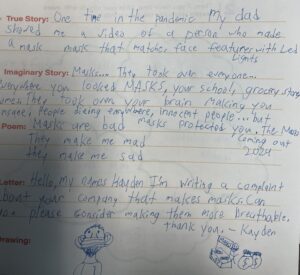 True Story: One time in the pandemic my dad
showed me a video of a person who made
a mask mask that matches face features with Led
Lights
Imaginary Story: Masks... They took over everyone...
everywhere you looked MASKS, your school, grocery store
They took over your brain making you
insane, People dieing everywhere, innocent people... but
Poem: Masks are bad masks protected you. The Masks
They make me mad coming out
they make me sad 2024
Letter: Hello, my names Kayden I'm writing a complaint
about your company that makes masks. Can
you please consider making them more breathable.
thank you, - Kayden
Drawing: